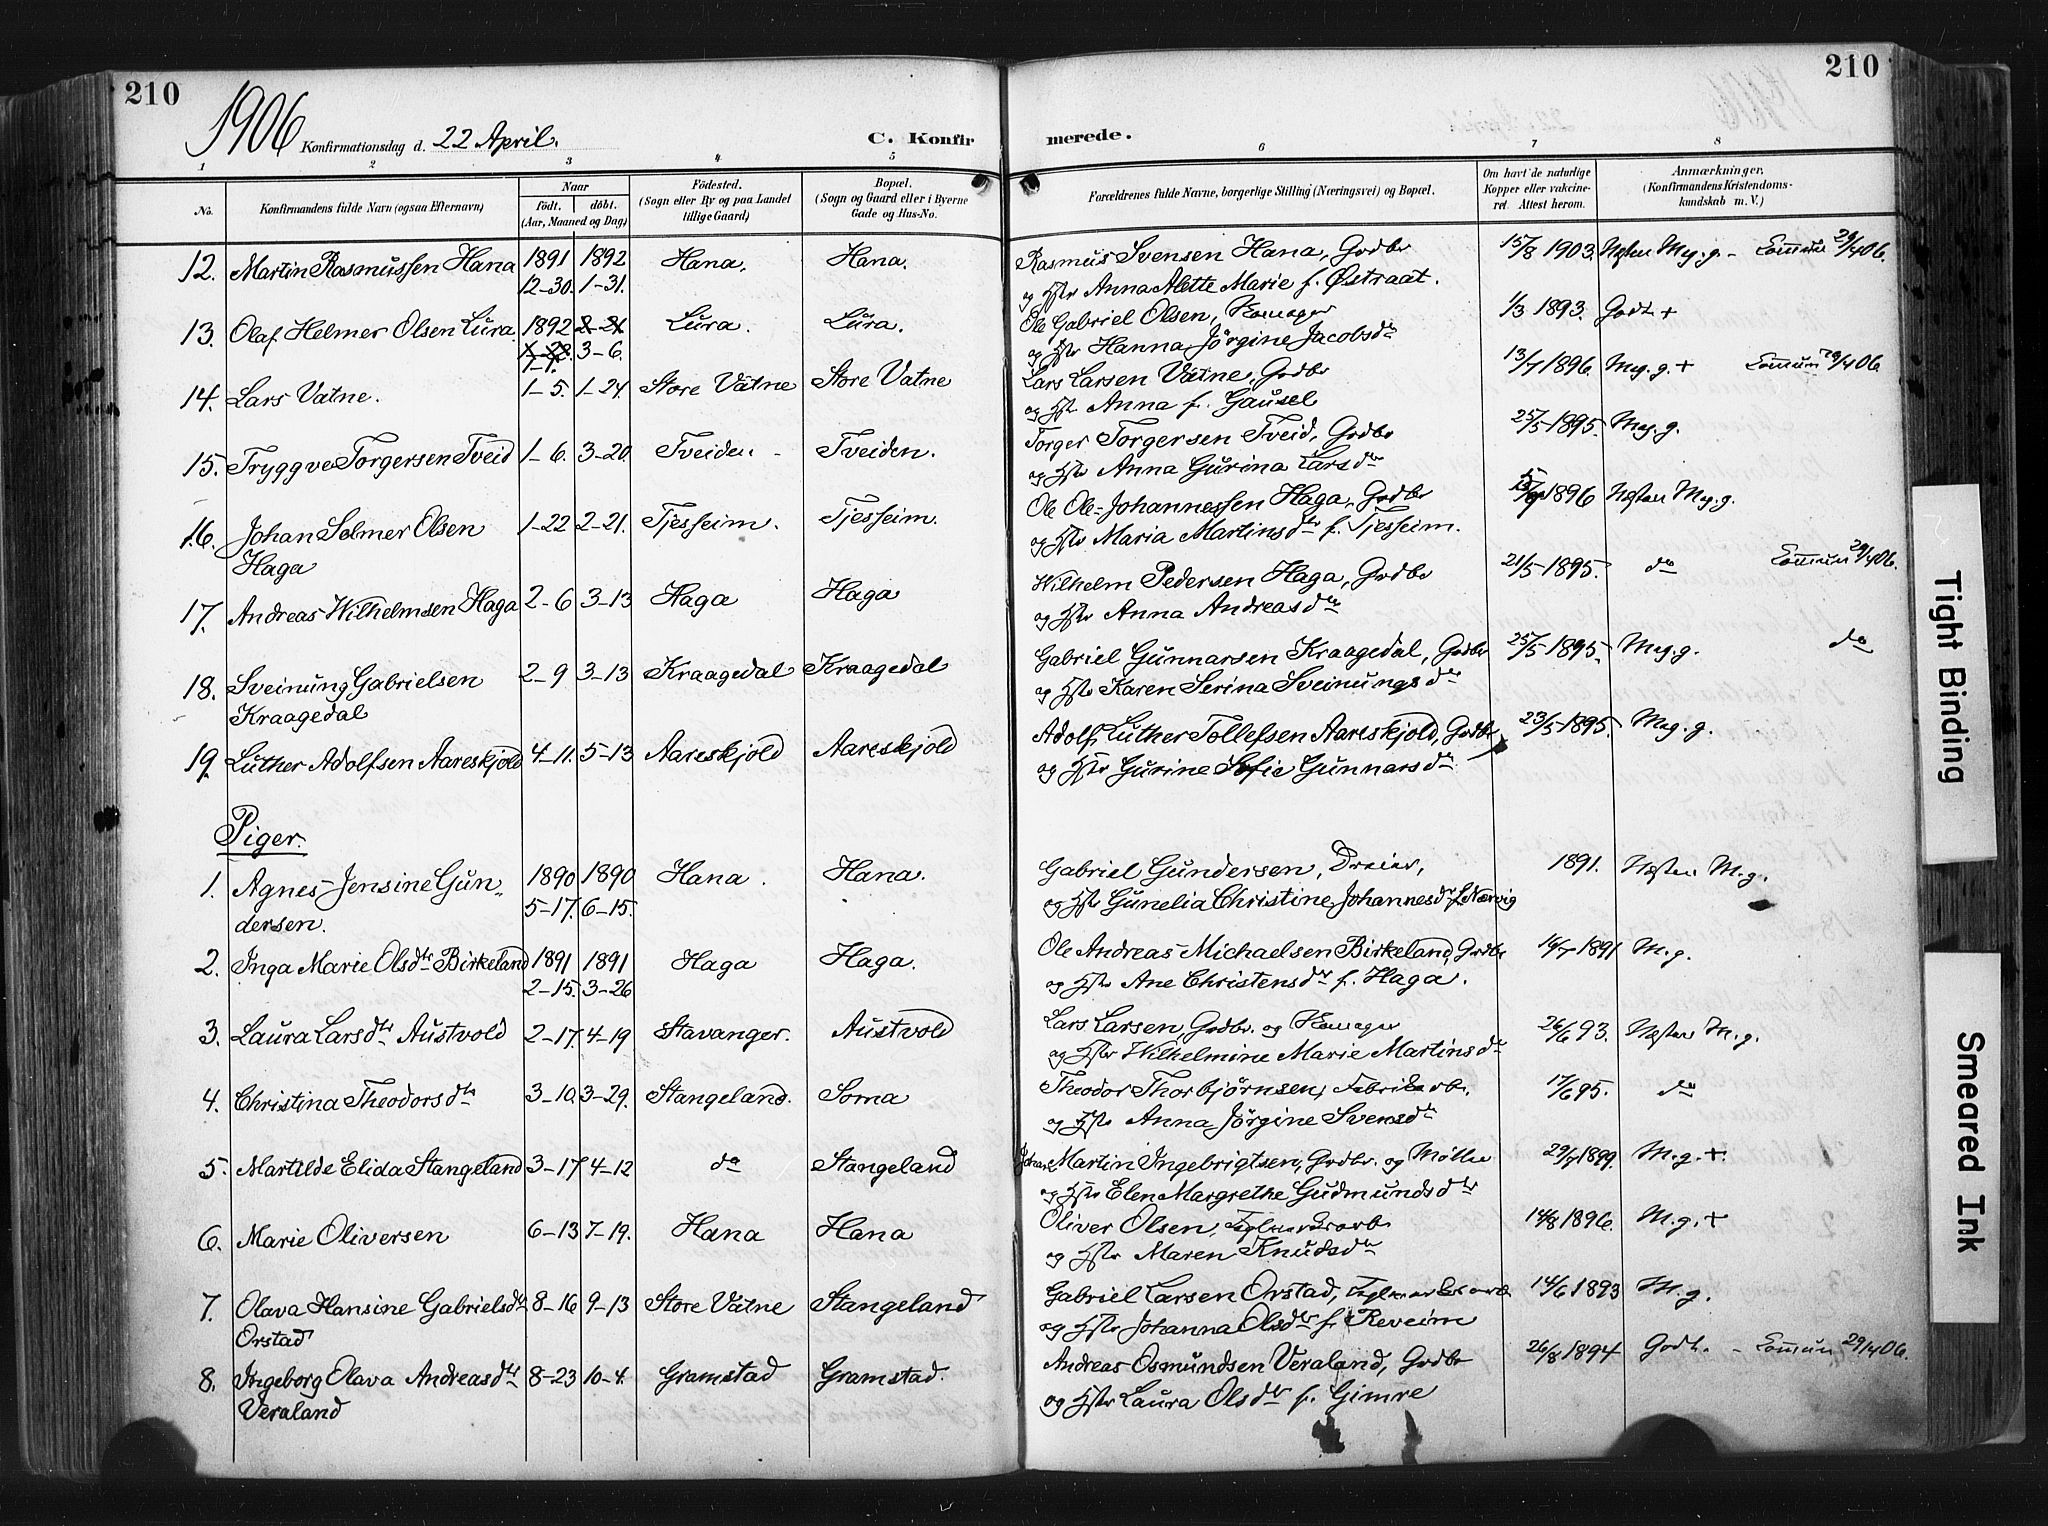 210
210
1906 Konfirmationsdag d. 22 April.
C. Konfirmerede.
1 2 3 4 5 6 7 8
No. Konfirmandens fulde Navn (ogsaa Efternavn) Naar Födt. döbt. (Aar, Maaned og Dag) Födested. (Sogn eller By og paa Landet tillige Gaard) Bopæl. (Sogn og Gaard eller i Byerne Gade og Hus-No. Forældrenes fulde Navne, borgerlige Stilling (Næringsvei) og Bopæl. Om havt de naturlige Kopper eller vakcineret. Attest herom. Anmærkninger. (Konfirmandens Kristendomskundskab m. V.)
12. Martin Rasmussen Hana 1891 12-30. 1892 1-31. Hana. Hana. Rasmus Svensen Hana, Grdbr 15/8 1903. Næsten Mg. g. - Commun 29/4 06.
og Hstr Anna Alette Marie f. Østraat.
13. Olaf Helmer Olsen Lura. 1892 3-6. Lura. Lura. Ole Gabriel Olsen, 1/3 1893. Godt +
og Hstr Hanna Jörgine Jacobsdtr
14. Lars Vatne. 1-5. 1-24. Store Vatne Store Vatne Lars Larsen Vatne, Grdbr 13/7 1896. Meg. g. + Commun 29/4 06.
og Hstr Anna f. Gausel
15. Tryggve Torgersen Tveid 1-6. 3-20. Tveiden - Tveiden. Torger Torgersen Tveid, Grdbr 25/5 1895. Meg. g.
og Hstr Anna Gurina Larsdtr
16. Johan Selmer Olsen 1-22 2-21. Tjesseim. Tjessheim. Ole Ole-Johannessen Haga, Grdbr 1896 Næsten Meg. g.
Haga og Hstr Maria Martinsdtr f. Tjessheim.
17. Andreas Wilhelmsen Haga 2-6 3-13 Haga Haga Wilhelm Pedersen Haga, Grdbr 21/5 1895. do Commun 29/4 06.
og Hstr Anna Andreasdtr
18. Sveinung Gabrielsen 2-9 3-13 Kraagedal Kraagedal Gabriel Gunnarsen Kraagedal, Grdbr 25/5 1895. Meg. g. do
Kraagedal og Hstr Karen Serina Sveinungsdtr
19. Luther Adolfsen Aareskjold 4-11. 5-13 Aareskjold Aareskjold Adolf Luther Tollefsen Aareskjold, Grdbr 23/5 1895. Meg. g.
og Hstr Gurine Sofie Gunnarsdtr
Piger.
1. Agnes Jensine Gun- 1890 5-17. 1890 6-15. Hana. Hana. Gabriel Gundersen, Dreier, 1891. Næsten M. g.
dersen. og Hstr Gunelia Christine Johannesdtr f. Nærvig
2. Inga Marie Olsdtr Birkeland 1891 2-15. 1891 3-26 Haga Haga. Ole Andreas Michaelsen Birkeland, Grdbr 1891 M. g.
og Hstr Ane Christensdtr f. Haga.
3. Laura Larsdtr Austvold 2-17. 4-19 Stavanger. Austvold Lars Larsen, Grdbr. og 26/6 93. Næsten M. g.
og Hstr Wilhelmine Marie Martinsdtr
4. Christina Theodorsdtr 3-10. 3-29. Stangeland. Soma Theodor Thorbjörnsen, Fabrikarb. 17/6 95. do
og Hstr Anna Jörgine Svensdtr
5. Martilde Elida Stangeland 3-17. 4-12 do Stangeland Johan Martin Ingebrigtsen, Grdbr. og Møller 29/7 1899. M. g. +.
og Hstr Elen Margrethe Gudmundsdtr
6. Marie Oliversen 6-13 7-19. Hana Hana Oliver Olsen, Teglværksarb 14/8 1896. M. g. +
og Hstr Maren Knudsdtr
7. Olava Hansine Gabrielsdtr 8-16 9-13 Store Vatne Stangeland Gabriel Larsen Orstad, Teglværksarb 14/6 1893 M. g.
Orstad og Hstr Johanna Olsdtr f. Reveim
8. Ingeborg Olava Andreasdtr 8-23 10-4. Gramstad Gramstad. Andreas Osmundsen Veraland, Grdbr 26/8 1894 Godt. - Commun 29/4 06.
Veraland og Hstr Laura Olsdtr f. Gimre
Tight Binding
Smeared Ink